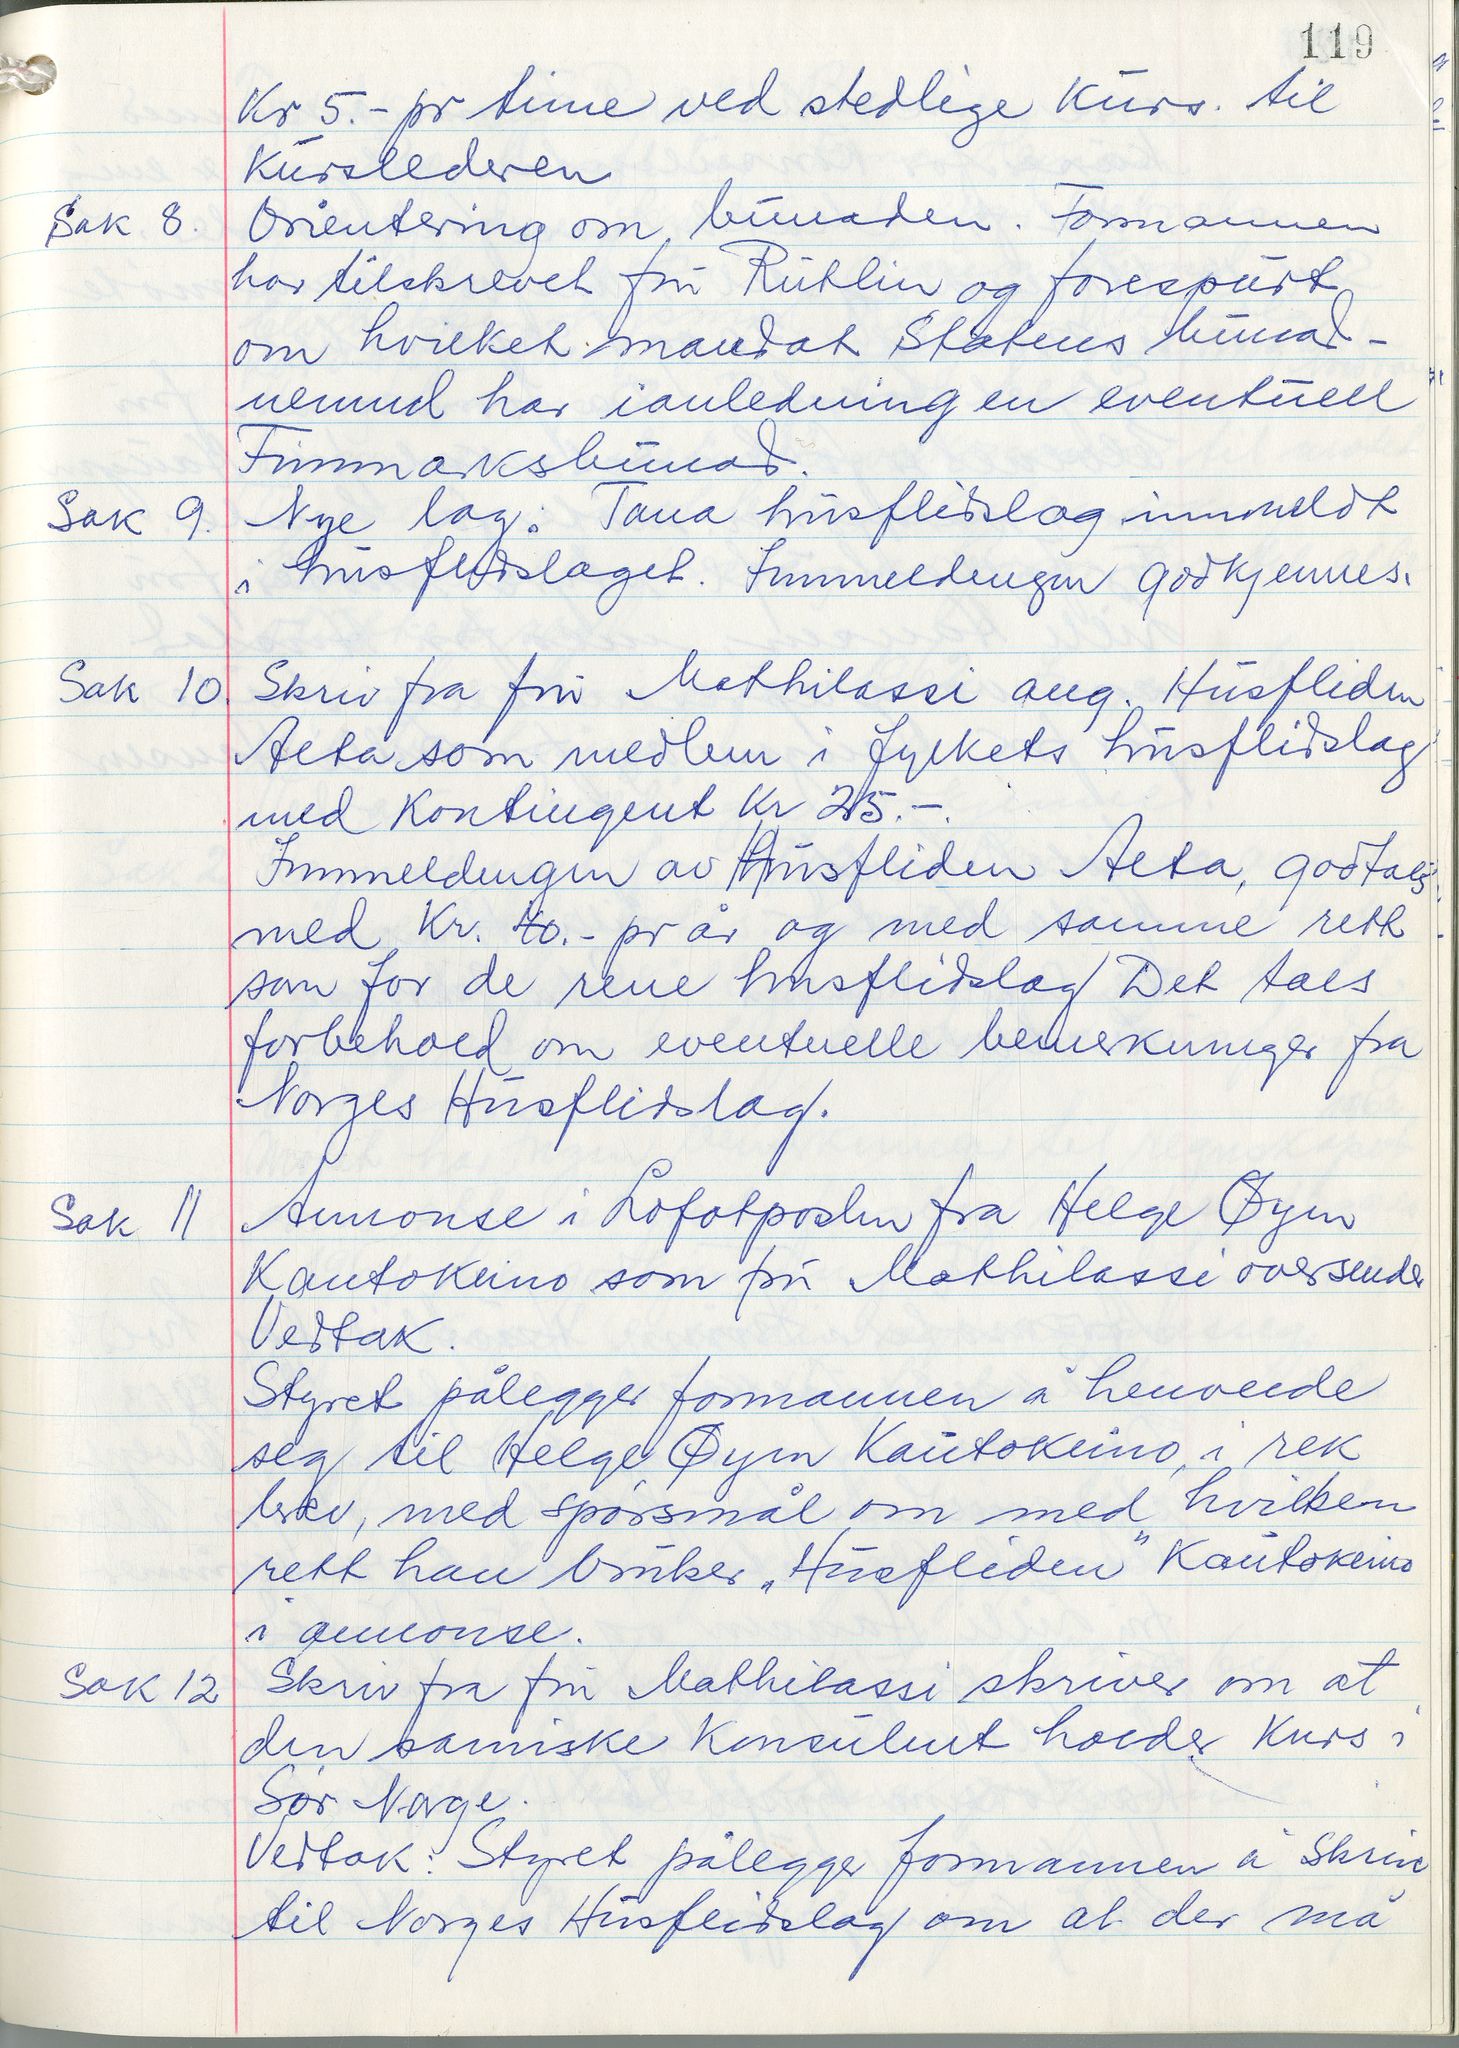 119
Kr 5.- pr time ved stedlige Kurs. til
Kurslederen
Sak 8. Orientering om bunaden. Formannen
har tilskrevet fru Rutlin og forespurt
om hvilket mandat Statens bunad-
nemnd har i anledning en eventuell
Finnmarksbunad.
Sak 9. Nye lag: Tana husflidslag innmeldt
i husflidslaget. Innmeldingen godkjennes.
Sak 10. Skriv fra fru Mathilassi ang. Husfliden
Alta som medlem i fylkets husflidslag
med Kontingent Kr 25.-.
Innmeldingen av Husfliden Alta, godtas
med Kr. 40.- pr år og med samme rett
som for de rene husflidslag Det taes
forbehold om eventuelle bemerkninger fra
Norges Husflidslag.
Sak 11 Annonse i Lofotposten fra Helge Øyen
Kautokeino som fru Mathilassi oversender
Vedtak.
Styret pålegger formannen å henvende
seg til Helge Øyen Kautokeino, i rek
brev, med spørsmål om med hvilken
rett han bruker „Husfliden" Kautokeino
i annonse.
Sak 12 Skriv fra fru Mathilassi skriver om at
den samiske Konsulent holder Kurs i
Sør Norge.
Vedtak: Styret pålegger formannen å Skrive
til Norges Husflidslag om at der må